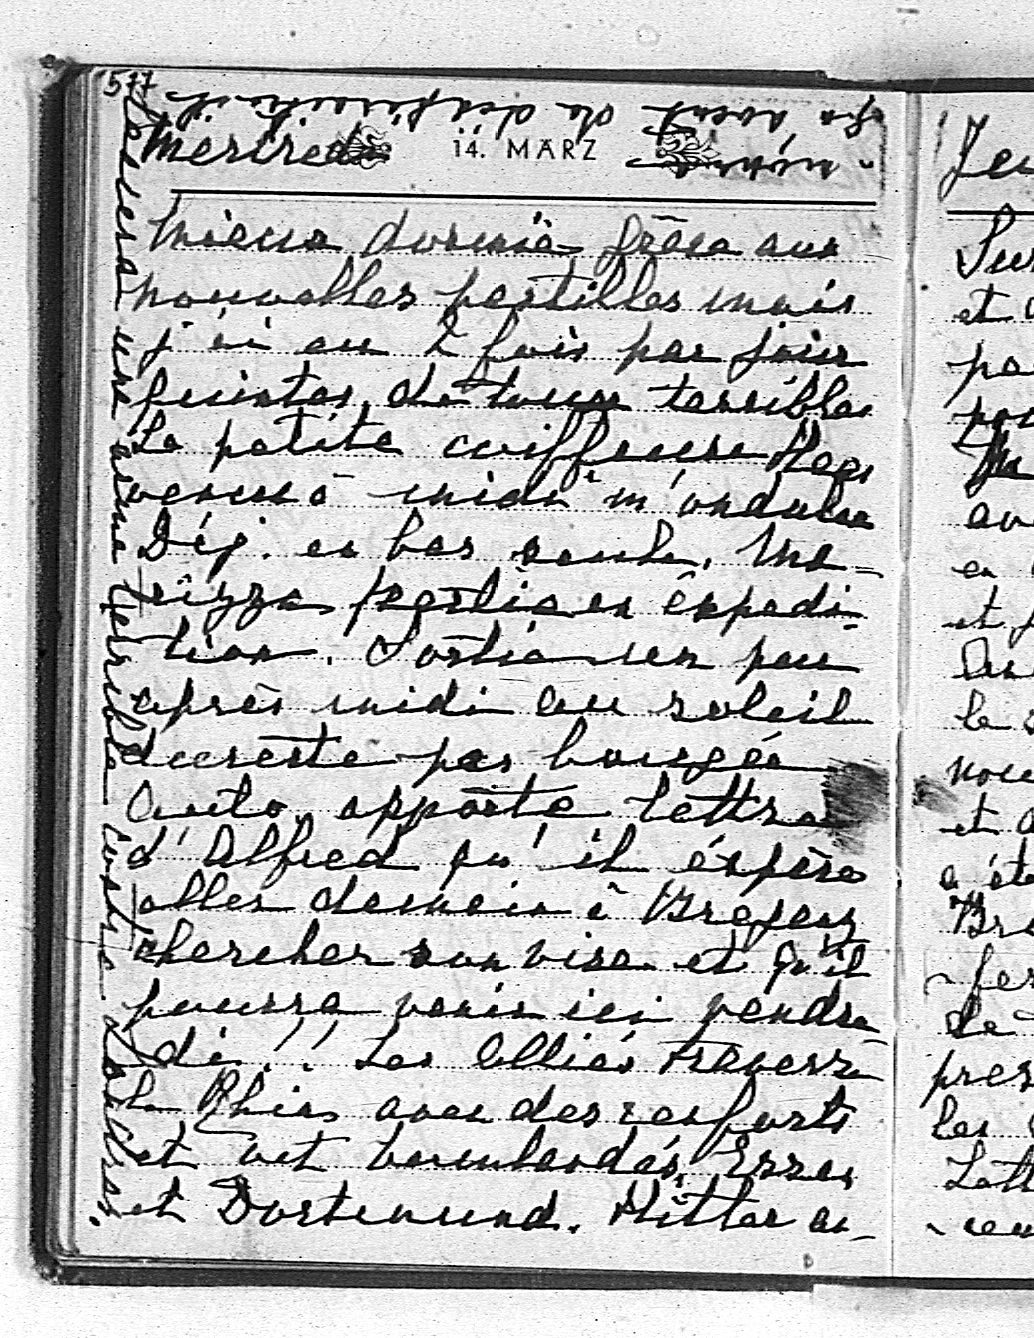 577
Mercredi
14. MÄRZ
Mieux dormie, grâce aux
nouvelles pastilles mais
j'ai eu 2 fois par jour
quintes de toux terribles
La petite coiffeuse
venue à midi m'ondulee
Déj. en bas seule. Ma-
rizza partie en expedi-
tion. Sortie un peu
après midi au soleil
du reste pas bougée
Auto apporte lettre
d'Alfred qu'il éspère
aller demain à Bregenz
chercher son visa et qu'il
pourra venir ici vendre-
di!! Les Alliés travers.
le Rhin avec des renforts
et ont bombardés Essen
et Dortmund. Hitler a
Ce sera une arme terrible contre
Jeu
Sur
et
pa
en
et
le
nou
et
a été
Bre
fer
de
pres
les
Lett